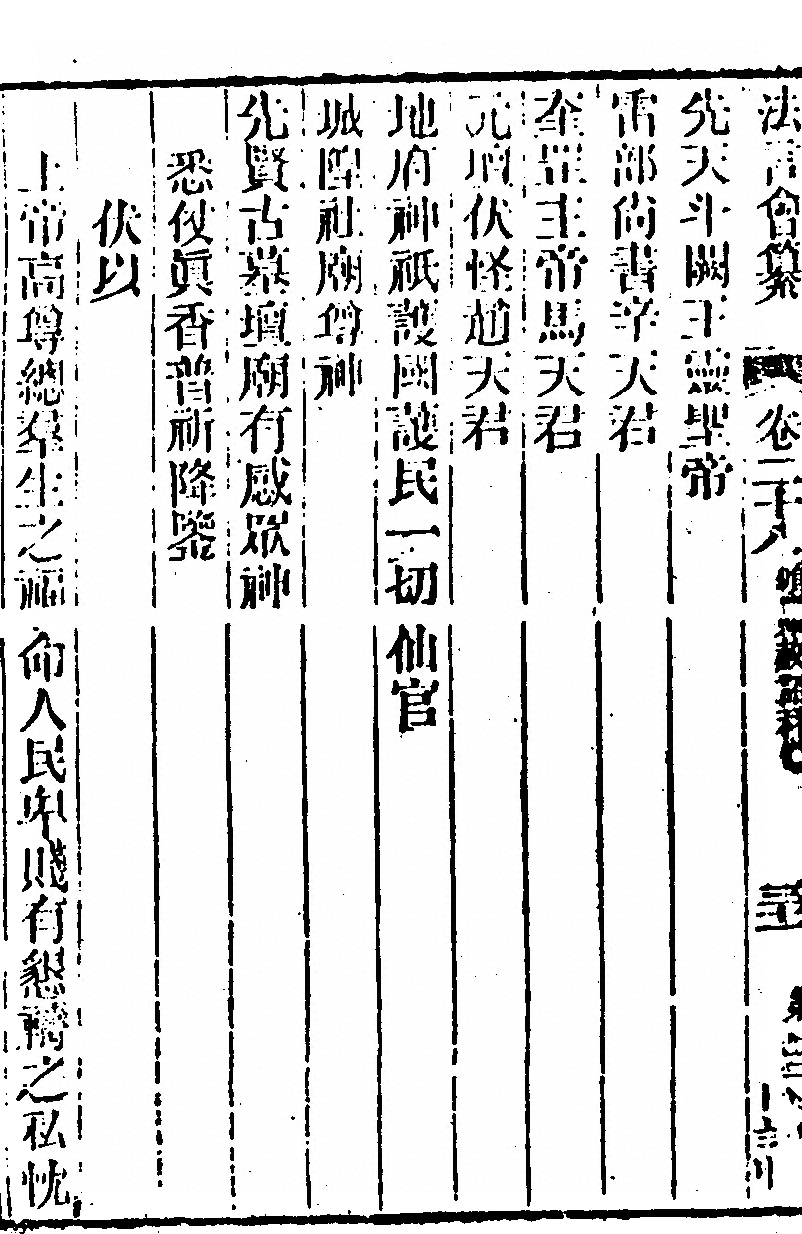 法言會纂 卷二十八
先天斗闕王靈聖帝
雷部尚書辛天君
奎罡主帝馬天君
元壇伏怪趙天君
地府神祇護國護民一切仙官
城隍社廟尊神
先賢古墓壇廟有感眾神
悉仗眞香普祈降鑒
伏以
上帝高尊總羣生之福命人民卑賤有懇禱之私忱